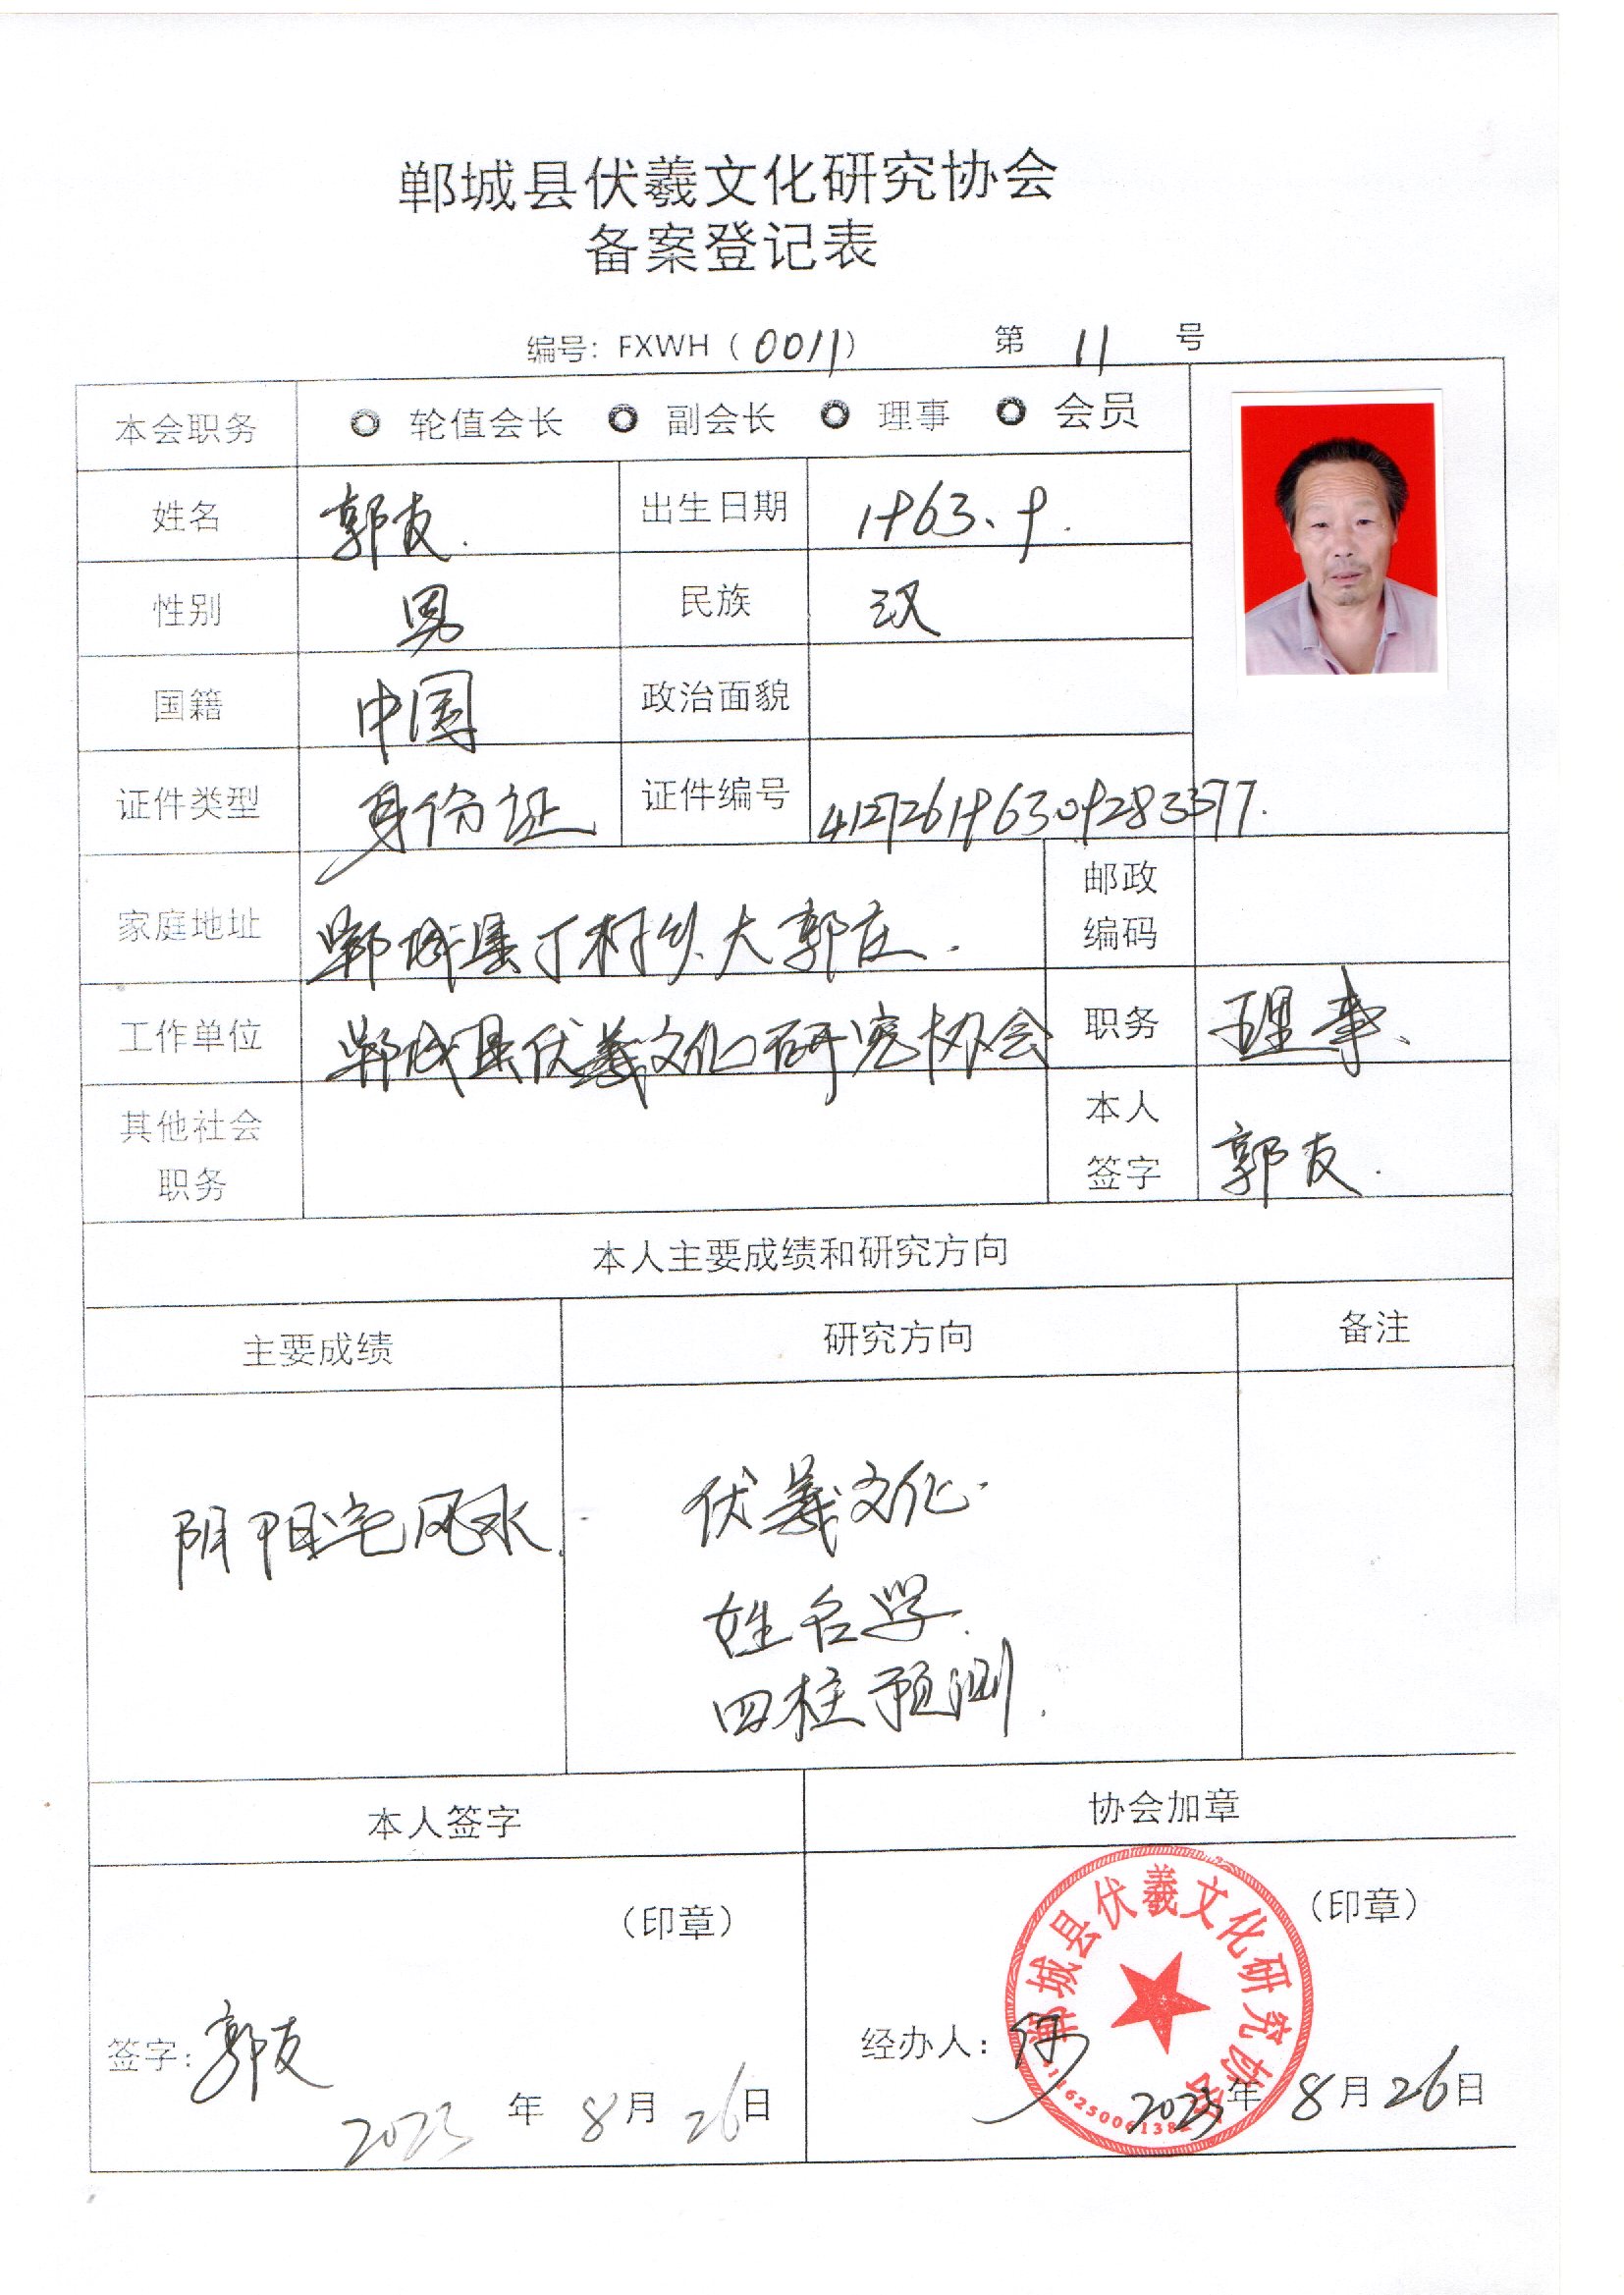 郸城县伏羲文化研究协会
备案登记表
编号：FXWH（0011） 第 11 号
本会职务 轮值会长 副会长 理事 会员
姓名 郭友. 出生日期 1963、9.
性别 男 民族 汉
国籍 中国 政治面貌
证件类型 身份证 证件编号 412726196309283377.
家庭地址 郸城县丁村乡大郭庄. 邮政编码
工作单位 郸城县伏羲文化研究协会 职务 理事、
其他社会职务 本人签字 郭友.
本人主要成绩和研究方向
主要成绩 研究方向 备注
阴阳宅风水.
伏羲文化.
姓名学.
四柱预测.
本人签字 协会加章
（印章） （印章）
郸城县伏羲文化研究协会
签字：郭友 经办人：
2023年 8月 26日 2023年 8月 26日